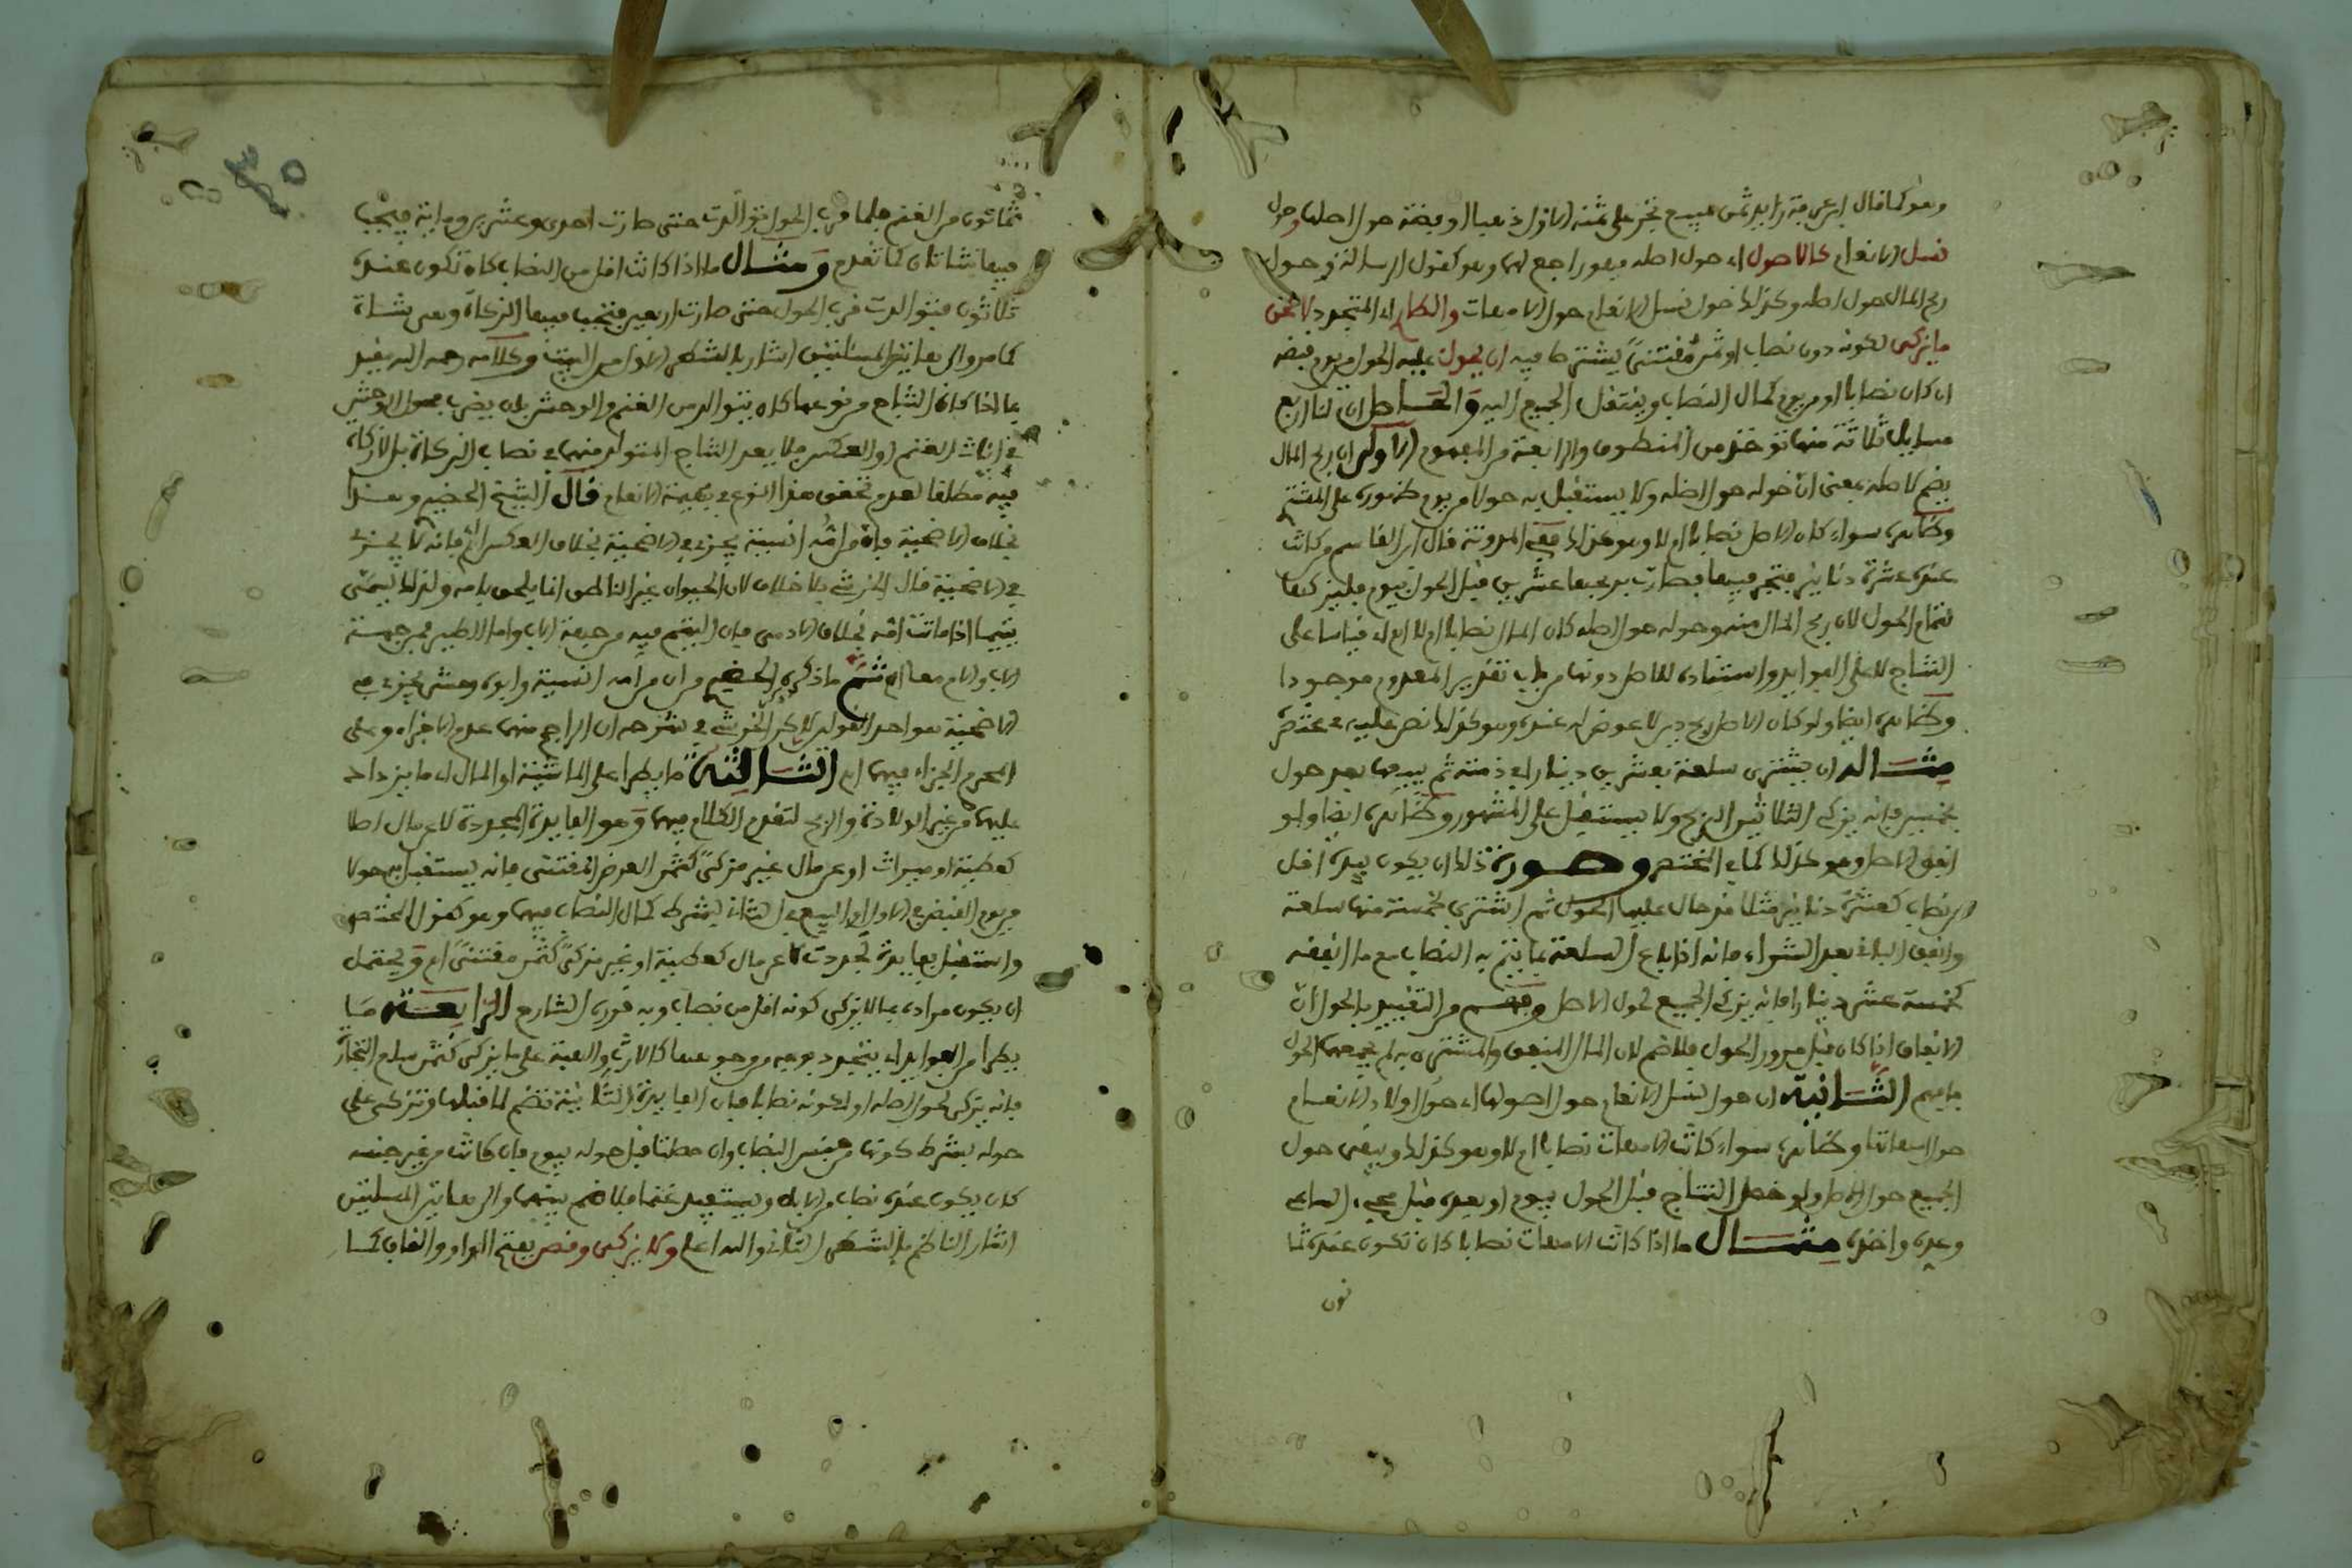 وهو كما قال ابن عرفة زايد ثمن مبيع تجر على ثمنه الاول ذهبا او فضة حول اصلها وحول
نسل الانعام كالاصول اي حول اصله فهو راجع لهما وهو كقول الرسالة وحول
ربح المال حول اصله وكذلك حول نسل الانعام حول الامهات والطار اي المتجدد لا عن
ما يزكى لكونه دون نصاب او ثمن مقتنى يشترط فيه ان يحول عليه الحول من يوم قبضه
ان كان نصابا او من يوم كمال النصاب وينتقل الجميع اليه والحاصل ان لنا اربع
مسايل ثلاثة منها توخذ من المنطوق والرابعة من المفهوم الاولى ان ربح المال
يضم لاصله بمعنى ان حوله حول اصله ولا يستقبل به حولا من يوم ظهوره على المشهور
وظاهره سواء كان الاصل نصابا ام لا وهو كذلك ففي المدونة قال ابن القاسم من كانت
عنده عشرة دنانير فتجر فيها فصارت بربحها عشرين قبل الحول بيوم فليزكها
لتمام الحول لان ربح المال منه وحوله حول اصله كان المال نصابا ام لا اه قياسا على
النتاج لا على الفوايد واستناده للاصل دونها من باب تقدير المعدوم موجودا
وظاهره ايضا ولو كان الاصل ربح دين لا عوض له عنده وهو كذلك نص عليه في مختصره
مثاله ان يشتري سلعة بعشرين دينارا في ذمته ثم يبيعها بعد حول
بخمسين فانه يزكي الثلاثين الربح ولا يستقبل على المشهور وظاهره ايضا ولو
انفق الاصل وهو كذلك كما في المختصر وصورة ذلك ان يكون بيده اقل
من نصاب كعشرة دنانير مثلا قد حال عليها الحول ثم اشترى بخمسة منها سلعة
وانفق الباقي بعد الشراء فانه اذا باع السلعة بما يتم به النصاب مع ما انفقه
كخمسة عشر دينارا فانه يزكي الجميع لحول الاصل وفهم من التقييد بالحول ان
الانفاق اذا كان قبل مرور الحول فلا ضم لان المال المنفق والمشترى به لم يجمعهما الحول
فافهم الثانية ان حول نسل الانعام حول اصولها اي حول اولاد الانعام
حول امهاتها وظاهره سواء كانت الامهات نصابا ام لا وهو كذلك ويبقى حول
الجميع حول الاصل ولو حصل النتاج قبل الحول بيوم او بعده قبل مجيء الساعي
وعده واخذه مثال ما اذا كانت الامهات نصابا كان تكون عنده ثما
نون
ثمانون من الغنم فلما قرب الحول توالدت حتى صارت احدى وعشرين وماية فيجب
فيها شاتان كما تقدم ومثال ما اذا كانت اقل من النصاب كان تكون عنده
ثلاثون فتوالدت قرب الحول حتى صارت اربعين فتجب فيها الزكاة وهي شاة
كما مر والى هاتين المسئلتين اشار بالشطر الاول من البيت وكلامه رحمه الله يقيد
بما اذا كان النتاج من نوعها كان يتوالد من الغنم والوحش بان يضرب فحول الوحش
في اناث الغنم او العكس فلا يعد النتاج المتولد منهما في نصاب الزكاة بل لا زكاة
فيه مطلقا لعدم تحقق هذا النوع في بهيمة الانعام قال الشيخ الخضير وهذا
بخلاف الاضحية فان من امه انسية يجزي في الاضحية بخلاف العكس اه فانه لا يجزئ
في الاضحية قال الخرشي بلا خلاف لان الحيوان غير الناطق انما يلحق بامه ولذلك يسمى
يتيما اذا ماتت امه بخلاف الادمي فان اليتم فيه من جهة الاب واما الطير فمن جهة
الاب والام معا اه ثم ما ذكره الخضير من ان من امه انسية وابوه وحش يجزئ في
الاضحية هو احد القولين لاكن ذكر الخرشي في شرحه ان الراجح منهما عدم الاجزاء وعلى
المحرم الجزاء فيهما اه الثالثة ما يطرا على الماشية او المال اي ما يزداد
عليهما من غير الولادة والربح لتقدم الكلام فيهما وهو الفايدة المتجددة لا عن مال اصلا
كعطية او ميراث او عن مال غير مزكى كثمن العرض المقتنى فانه يستقبل به حولا
من يوم القبض في الاول او البيع في الثاني بشرط كمال النصاب فيهما وهو كقول المختصر
واستقبل بفايدة تجددت لا عن مال كعطية او غير مزكى كثمن مقتنى اه ويحتمل
ان يكون مراده بما لا يزكى كونه اقل من نصاب وبه قرره الشارح الرابعة ما
يطرا من الفوايد اي يتجدد يومه من وجوهها كالارث والهبة على ما يزكى كثمن سلع التجارة
فانه يزكى لحول اصله او لكونه نصابا فان الفايدة الثانية تضم لما قبلها وتزكى على
حوله بشرط كونها من جنس النصاب وان حصلتا قبل حوله بيوم فان كانت من غير جنسه
كان يكون عنده نصاب من الابل ويستفيد غنما فلا ضم بينهما والى هاتين المسلتين
اشار الناظم بالشطر الثاني والله اعلم ولا يزكى وقص بفتح الواو والقاف كما